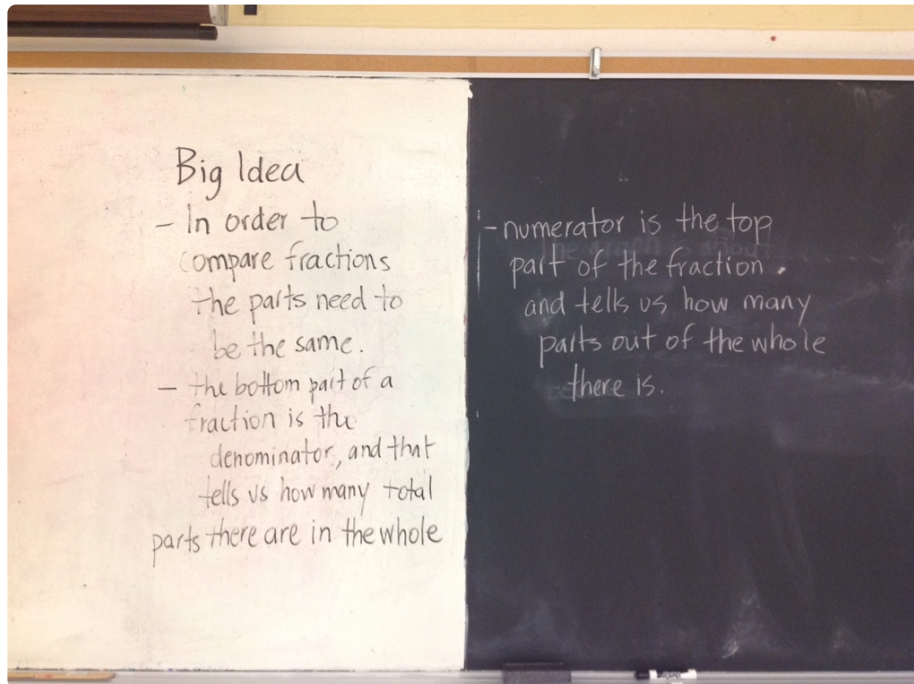 Big Idea
- In order to
compare fractions
the parts need to
be the same.
- the bottom part of a
fraction is the
denominator, and that
tells us how many total
parts there are in the whole
- numerator is the top
part of the fraction.
and tells us how many
parts out of the whole
there is.